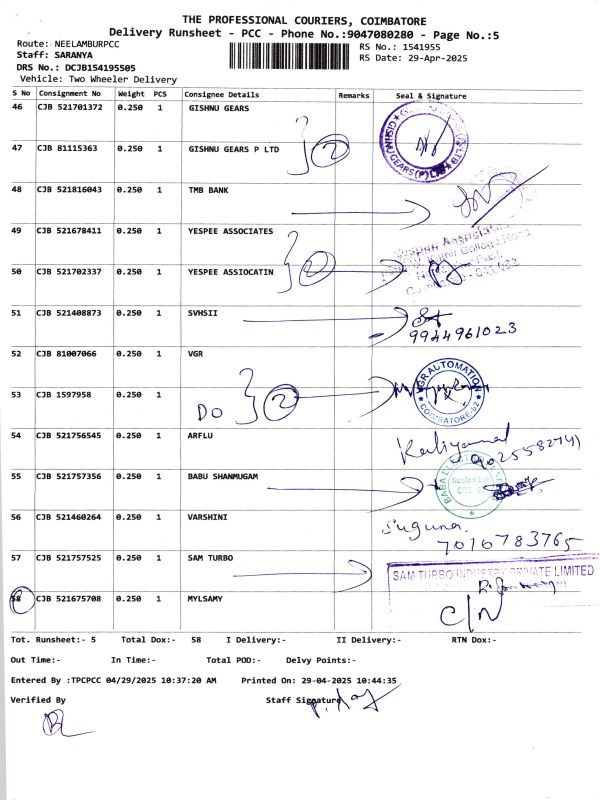 THE PROFESSIONAL COURIERS, COIMBATORE
Delivery Runsheet - PCC - Phone No.:9047080280 - Page No.:5
Route: NEELAMBURPCC
RS No.: 1541955
Staff: SARANYA
RS Date: 29-Apr-2025
DRS No.: DCJB154195505
Vehicle: Two Wheeler Delivery
S No Consignment No Weight PCS Consignee Details Remarks Seal & Signature
46 CJB 521701372 0.250 1 GISHNU GEARS
2
47 CJB 81115363 0.250 1 GISHNU GEARS P LTD
GEARS(P)LTD
48 CJB 521816043 0.250 1 TMB BANK
49 CJB 521678411 0.250 1 YESPEE ASSOCIATES
2
Yespee Associates
50 CJB 521702337 0.250 1 YESPEE ASSIOCATIN
51 CJB 521408873 0.250 1 SVHSII
9944961023
52 CJB 81007066 0.250 1 VGR
VGR AUTOMATION
COIMBATORE-62
53 CJB 1597958 0.250 1
DO
2
54 CJB 521756545 0.250 1 ARFLU
Kaliyammal
55 CJB 521757356 0.250 1 BABU SHANMUGAM
56 CJB 521460264 0.250 1 VARSHINI
Suguna
7016783765
57 CJB 521757525 0.250 1 SAM TURBO
SAM TURBO INDUSTRY PRIVATE LIMITED
58 CJB 521675708 0.250 1 MYLSAMY
C/N
Tot. Runsheet:- 5 Total Dox:- 58 I Delivery:- II Delivery:- RTN Dox:-
Out Time:- In Time:- Total POD:- Delvy Points:-
Entered By :TPCPCC 04/29/2025 10:37:20 AM Printed On: 29-04-2025 10:44:35
Verified By Staff Signature